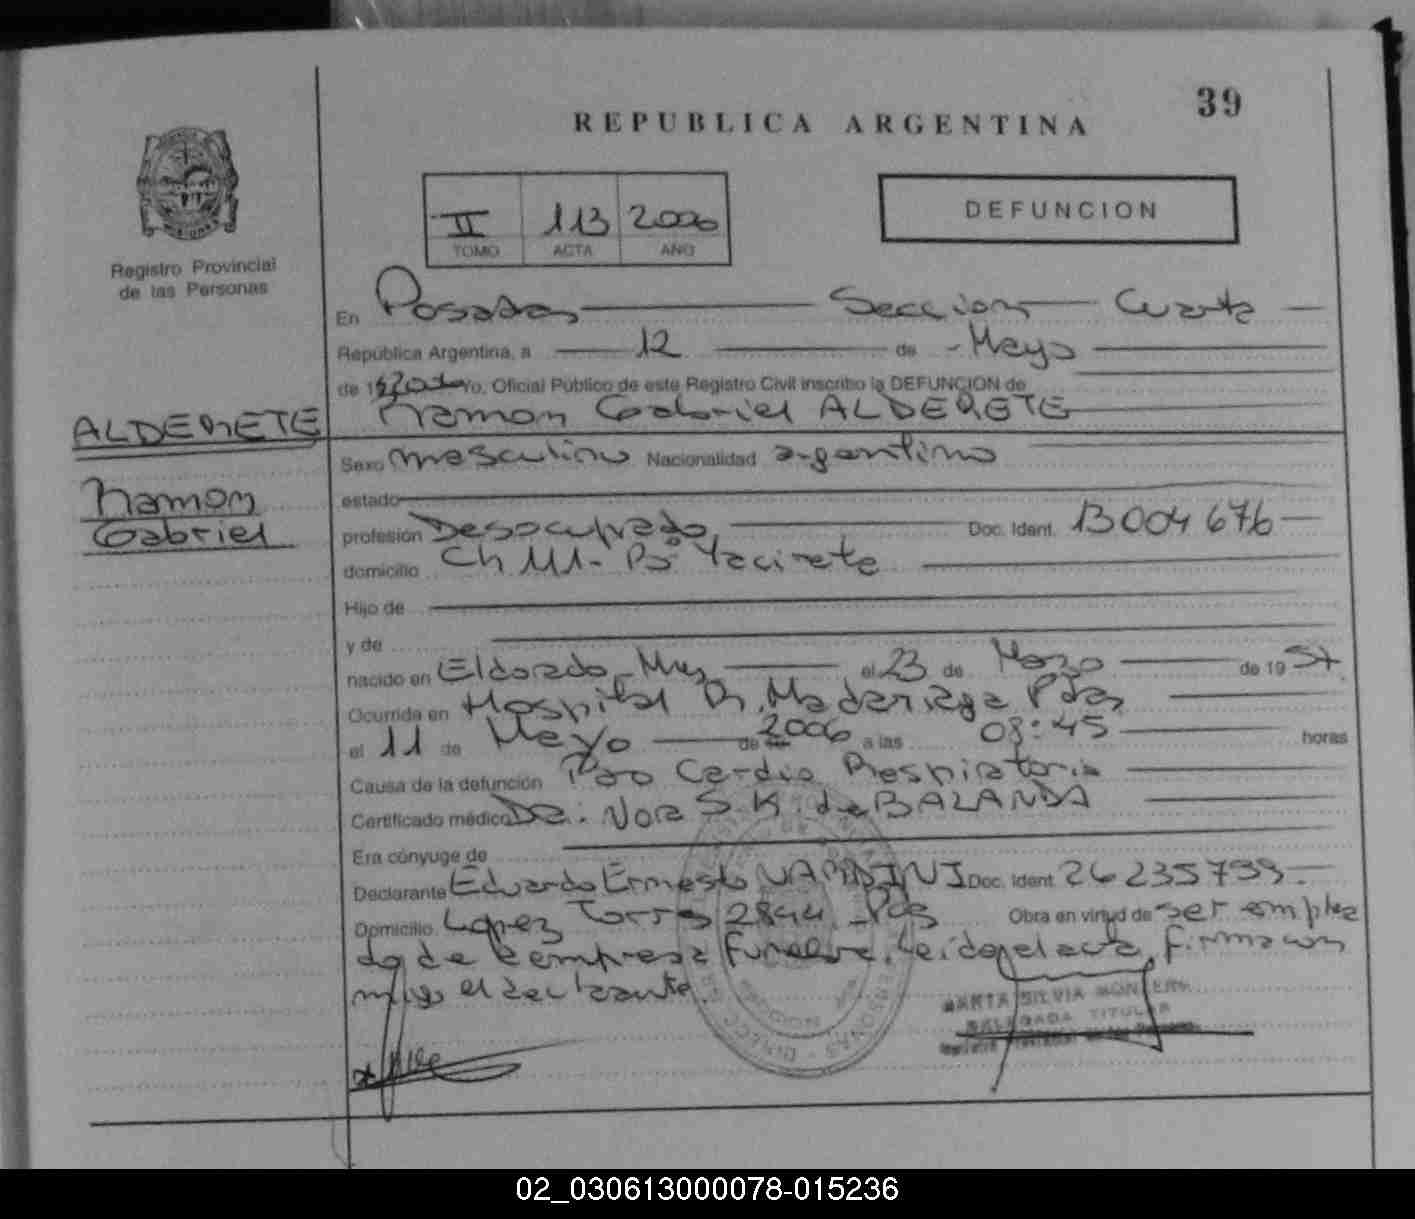 39
REPUBLICA ARGENTINA
II 113 2006
TOMO ACTA AÑO
DEFUNCION
Registro Provincial
de las Personas
En Posadas Seccion Cuarta
República Argentina, a 12 de Mayo
de Yo, Oficial Público de este Registro Civil inscribo la DEFUNCION de
Ramon Gabriel ALDERETE
ALDERETE
Ramon
Gabriel
Sexo masculino Nacionalidad argentino
estado
profesión Desocupado Doc. Ident. 13004676
domicilio Ch 111- Bº Yacireta
Hijo de
y de
nacido en Eldorado, Mnes el 23 de Marzo de 19 57
Ocurrida en Hospital R. Madariaga Pdas
el 11 de Mayo de 2006 a las 08:45 horas
Causa de la defunción Paro Cardio Respiratorio
Certificado médico Dra. Nora S. K. de BALANDA
Era cónyuge de
Declarante Eduardo Ernesto Doc. Ident. 26235799
Domicilio Lopez Torres 2844 Pdas Obra en virtud de ser emplea
do de la empresa funebre. Leida el acta, firma con
migo el declarante.
SILVIA
DELEGADA TITULAR
02_030613000078-015236